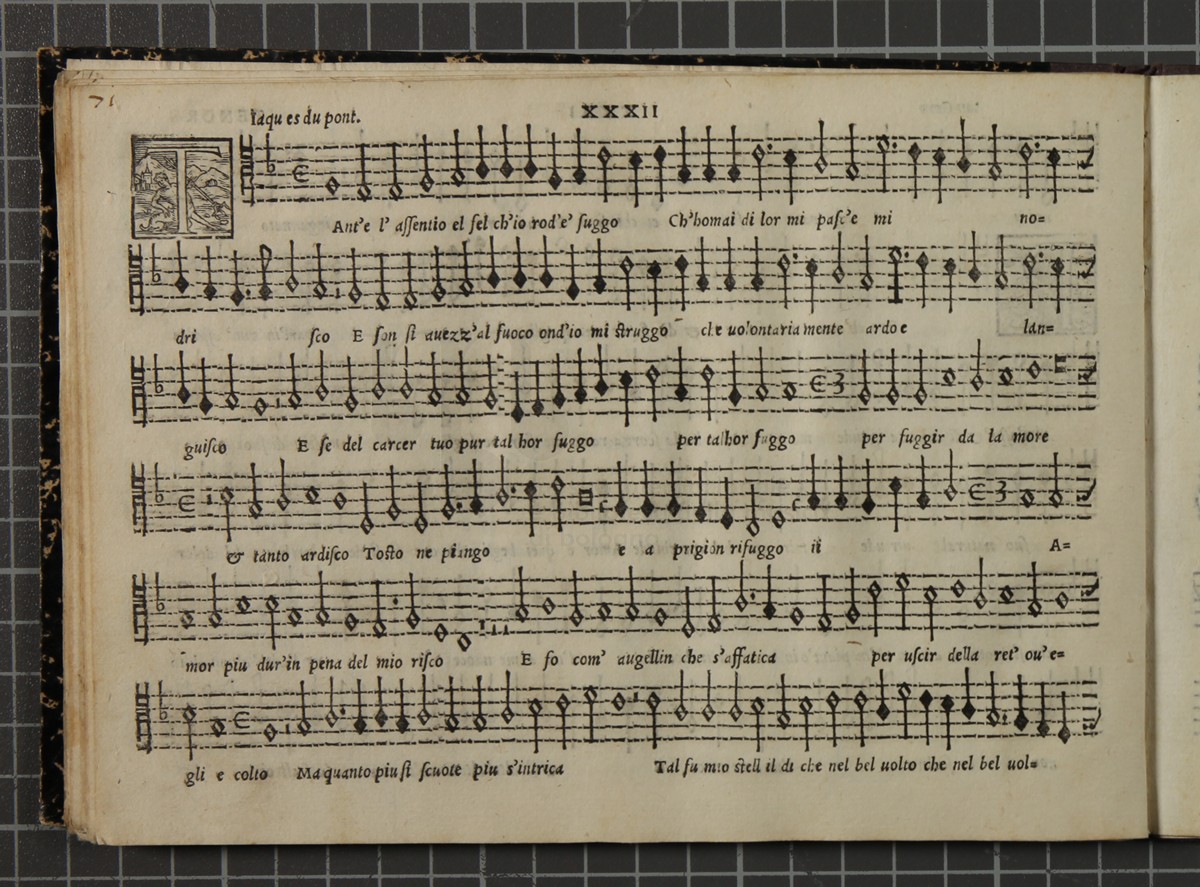 71
Iaques du pont.
XXXII
T
Ant'e l' aſſentio el fel ch'io rod'e' ſuggo Ch'homai di lor mi paſc'e mi no=
dri ſco E ſon ſi auezz'al fuoco ond'io mi ſtruggo che uolontariamente ardo e lan=
guiſco E ſe del carcer tuo pur tal hor fuggo per talhor fuggo per fuggir da la more
& tanto ardiſco Toſto ne piango e a prigion rifuggo ii A=
mor piu dur'in pena del mio riſco E fo com' augellin che s'affatica per uſcir della ret' ou'e=
gli e colto Ma quanto piu ſi ſcuote piu s'intrica Tal fu mio ſtell il di che nel bel uolto che nel bel uol=